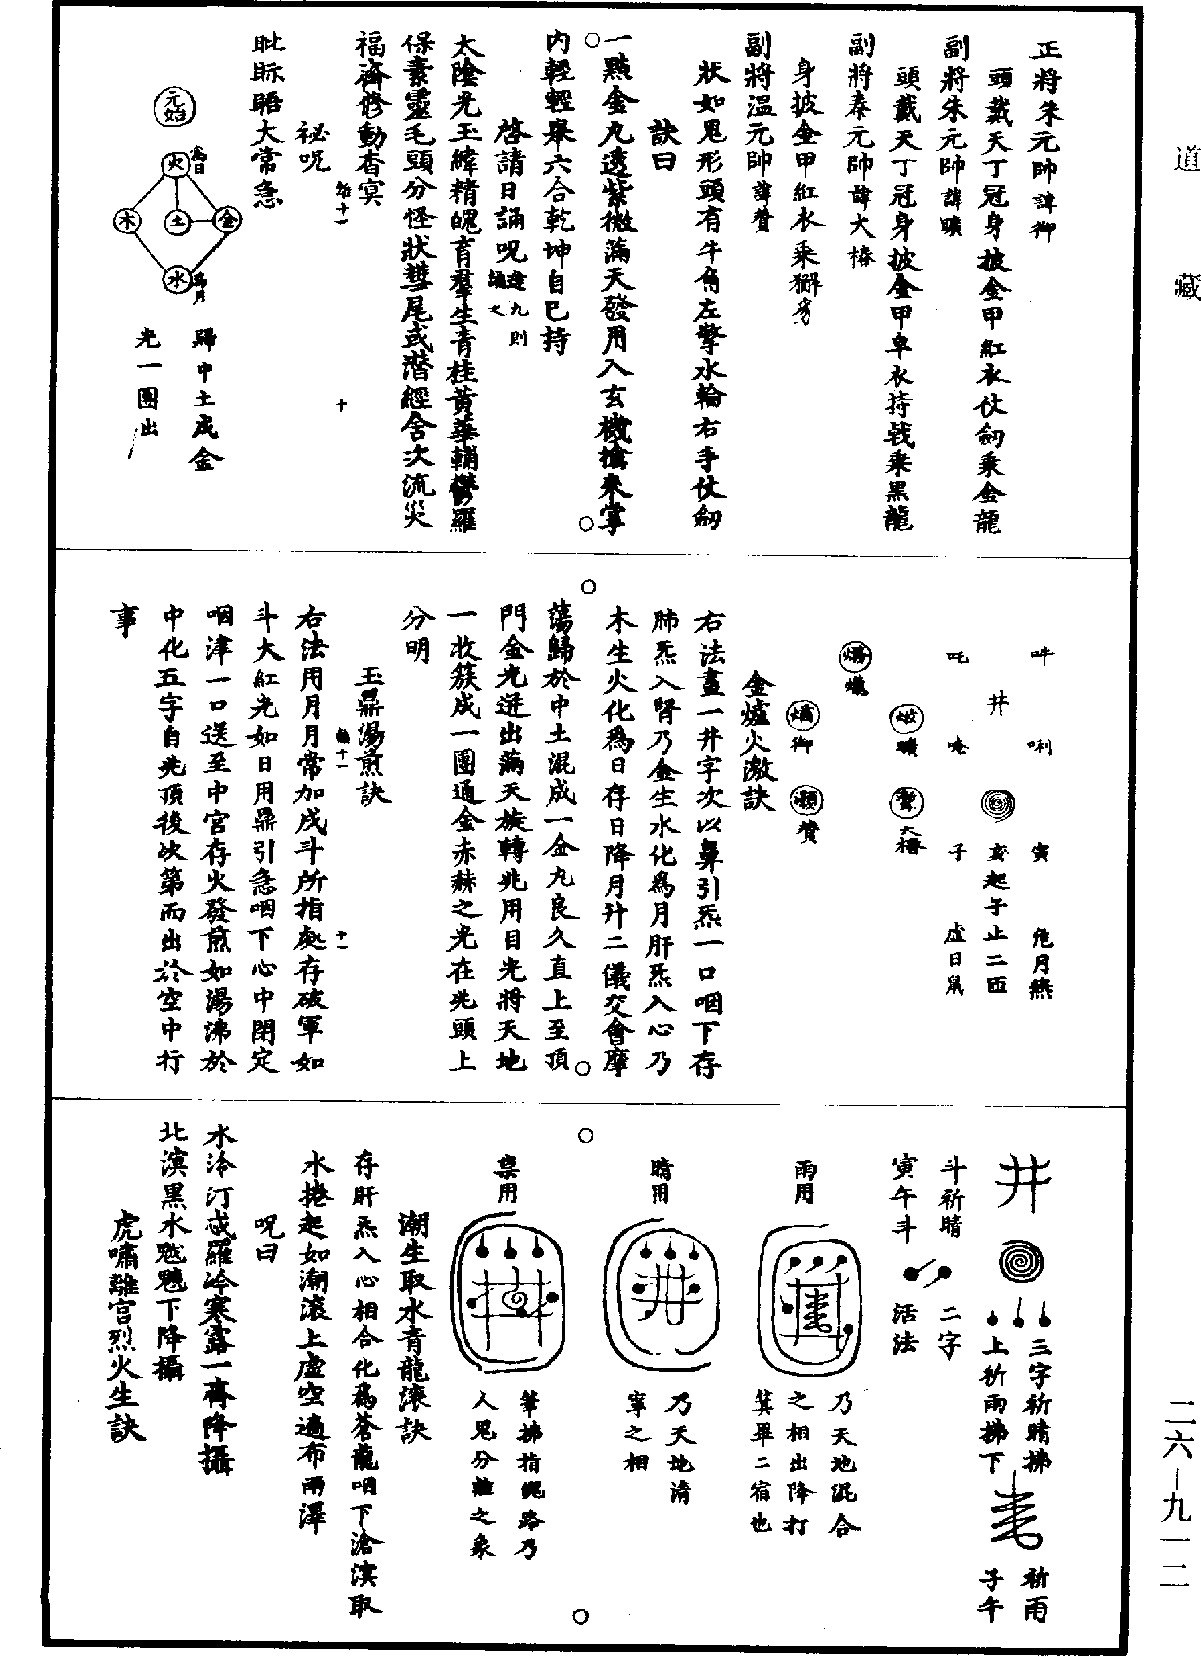 道藏
正將朱元帥諱御
頭戴天丁冠身披金甲紅衣仗劒乘金龍
副將朱元帥諱曠
頭戴天丁冠身披金甲皁衣持戟乘黑龍
副將秦元帥諱大椿
身披金甲紅衣乘獬豸
副將溫元帥諱贊
狀如鬼形頭有牛角左擎水輪右手仗劒
訣曰
一點金丸透紫微滿天發用入玄機搶來掌
內輕輕舉六合乾坤自已持
啓請日誦呪逢九則誦之
太陰光玉緯精魄育羣生青桂黃華輔鬱羅
保素靈毛頭分怪狀彗尾或潛經舍次流災
福齋修動杳冥
祕呪
吡眎晤大常急
元始
火
為日
木
土
金
水
為月
歸中土成金
光一團出
吽 唎 寅 危月燕
井 亥起子止二匝
吒 唵 子 虛日鼠
曠
大椿
御
贊
金爐火激訣
右法畫一井字次以鼻引炁一口咽下存
肺炁入腎乃金生水化為月肝炁入心乃
木生火化為日存日降月升二儀交會摩
蕩歸於中土混成一金丸良久直上至頂
門金光迸出滿天旋轉兆用目光將天地
一收簇成一團通金赤赫之光在兆頭上
分明
玉鼎湯煎訣
右法用月月常加戌斗所指處存破軍如
斗大紅光如日用鼻引急咽下心中閉定
咽津一口送至中宮存火發煎如湯沸於
中化五字自兆頂後次第而出於空中行
事
井
三字祈晴拂
上祈雨拂下
祈雨
子午
斗祈晴 二字
寅午斗 活法
雨用
乃天地混合
之相出降打
箕畢二宿也
晴用
乃天地清
寧之相
祟用
筆拂指鬼路乃
人鬼分離之象
潮生取水青龍滾訣
存肝炁入心相合化為蒼龍咽下滄溟取
水捲起如潮滾上虛空遍布雨澤
呪曰
水泠汀忒羅冷寒露一齊降攝
北溟黑水魆魕下降攝
虎嘯離宮烈火生訣
二六—九一二